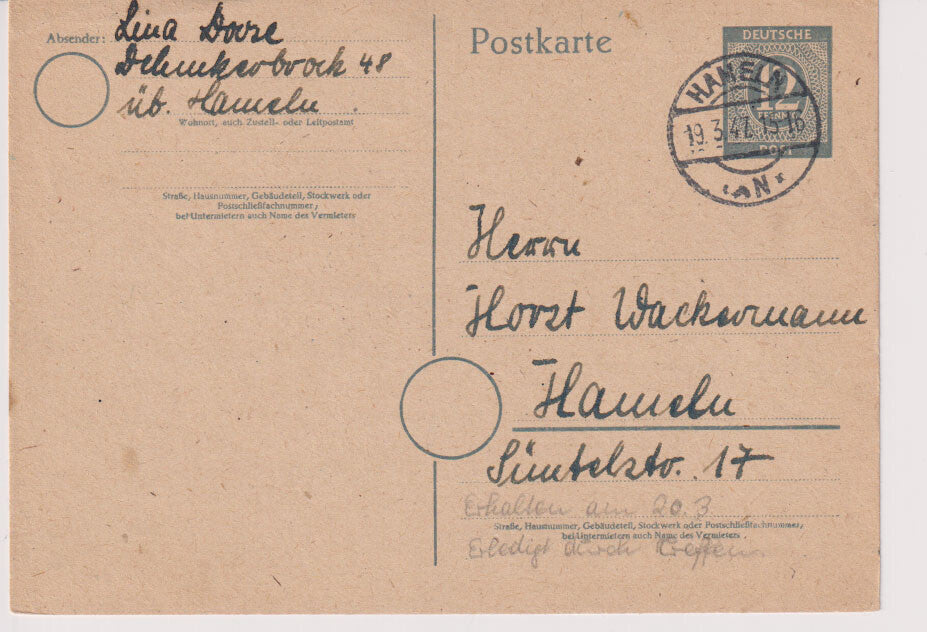 Absender: Lina Dorre
Dehmkerbrock 48
üb. Hameln.
Wohnort, auch Zustell- oder Leitpostamt
Straße, Hausnummer, Gebäudeteil, Stockwerk oder
Postschließfachnummer;
bei Untermietern auch Name des Vermieters
Postkarte
DEUTSCHE
12
POST
HAMELN
19.3.47.15-16
Herrn
Horst Wackermann
Hameln
Süntelstr. 17
Erhalten am 20.3
Straße, Hausnummer, Gebäudeteil, Stockwerk oder Postschließfachnummer;
bei Untermietern auch Name des Vermieters
Erledigt durch